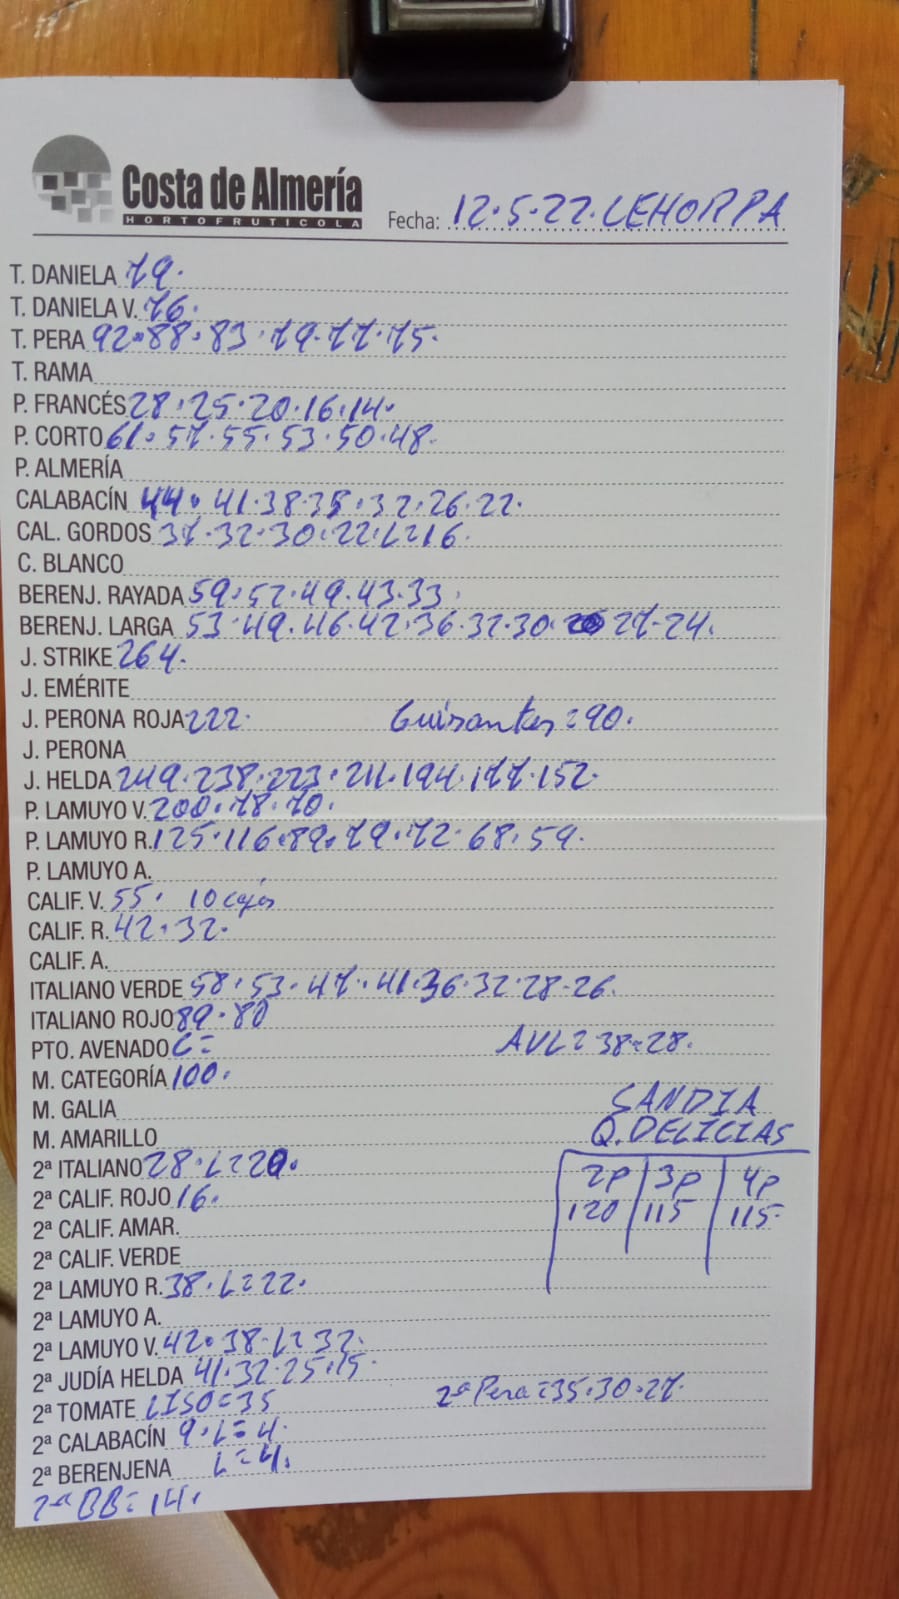 Costa de Almería
HORTOFRUTICOLA
Fecha: 12.5.22. CEHORPA
T. DANIELA 79.
T. DANIELA V. 76.
T. PERA 92.88.83.79.77.75.
T. RAMA
P. FRANCÉS 28.25.20.16.14.
P. CORTO 61.57.55.53.50.48.
P. ALMERÍA
CALABACÍN 44. 41.38.35.32.26.22.
CAL. GORDOS 37.32.30.22.L=16.
C. BLANCO
BERENJ. RAYADA 59.52.49.43.33.
BERENJ. LARGA 53.49.46.42.36.32.30. 27.24.
J. STRIKE 264.
J. EMÉRITE
J. PERONA ROJA 222. Guisantes=90.
J. PERONA
J. HELDA 249.238.223.211.194.177.152.
P. LAMUYO V. 200.78.70.
P. LAMUYO R. 125.116.89.79.72.68.59.
P. LAMUYO A.
CALIF. V. 55. 10 cajas
CALIF. R. 42.32.
CALIF. A.
ITALIANO VERDE 58.53.47.41.36.32.28.26.
ITALIANO ROJO 89.80
PTO. AVENADO C= AVL=38=28.
M. CATEGORÍA 100.
M. GALIA SANDIA
M. AMARILLO Q. DELICIAS
2ª ITALIANO 28.L=20. 2P 3P 4P
2ª CALIF. ROJO 16. 120 115 115.
2ª CALIF. AMAR.
2ª CALIF. VERDE
2ª LAMUYO R. 38.L=22.
2ª LAMUYO A.
2ª LAMUYO V. 42.38.L=32.
2ª JUDÍA HELDA 41.32.25.15.
2ª TOMATE LISO=35 2ª Pera=35.30.27.
2ª CALABACÍN 9.L=4.
2ª BERENJENA L=4.
2ª BB=14.